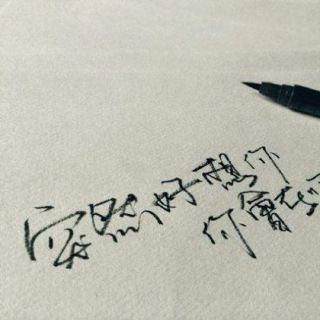 突然好想你
你會在